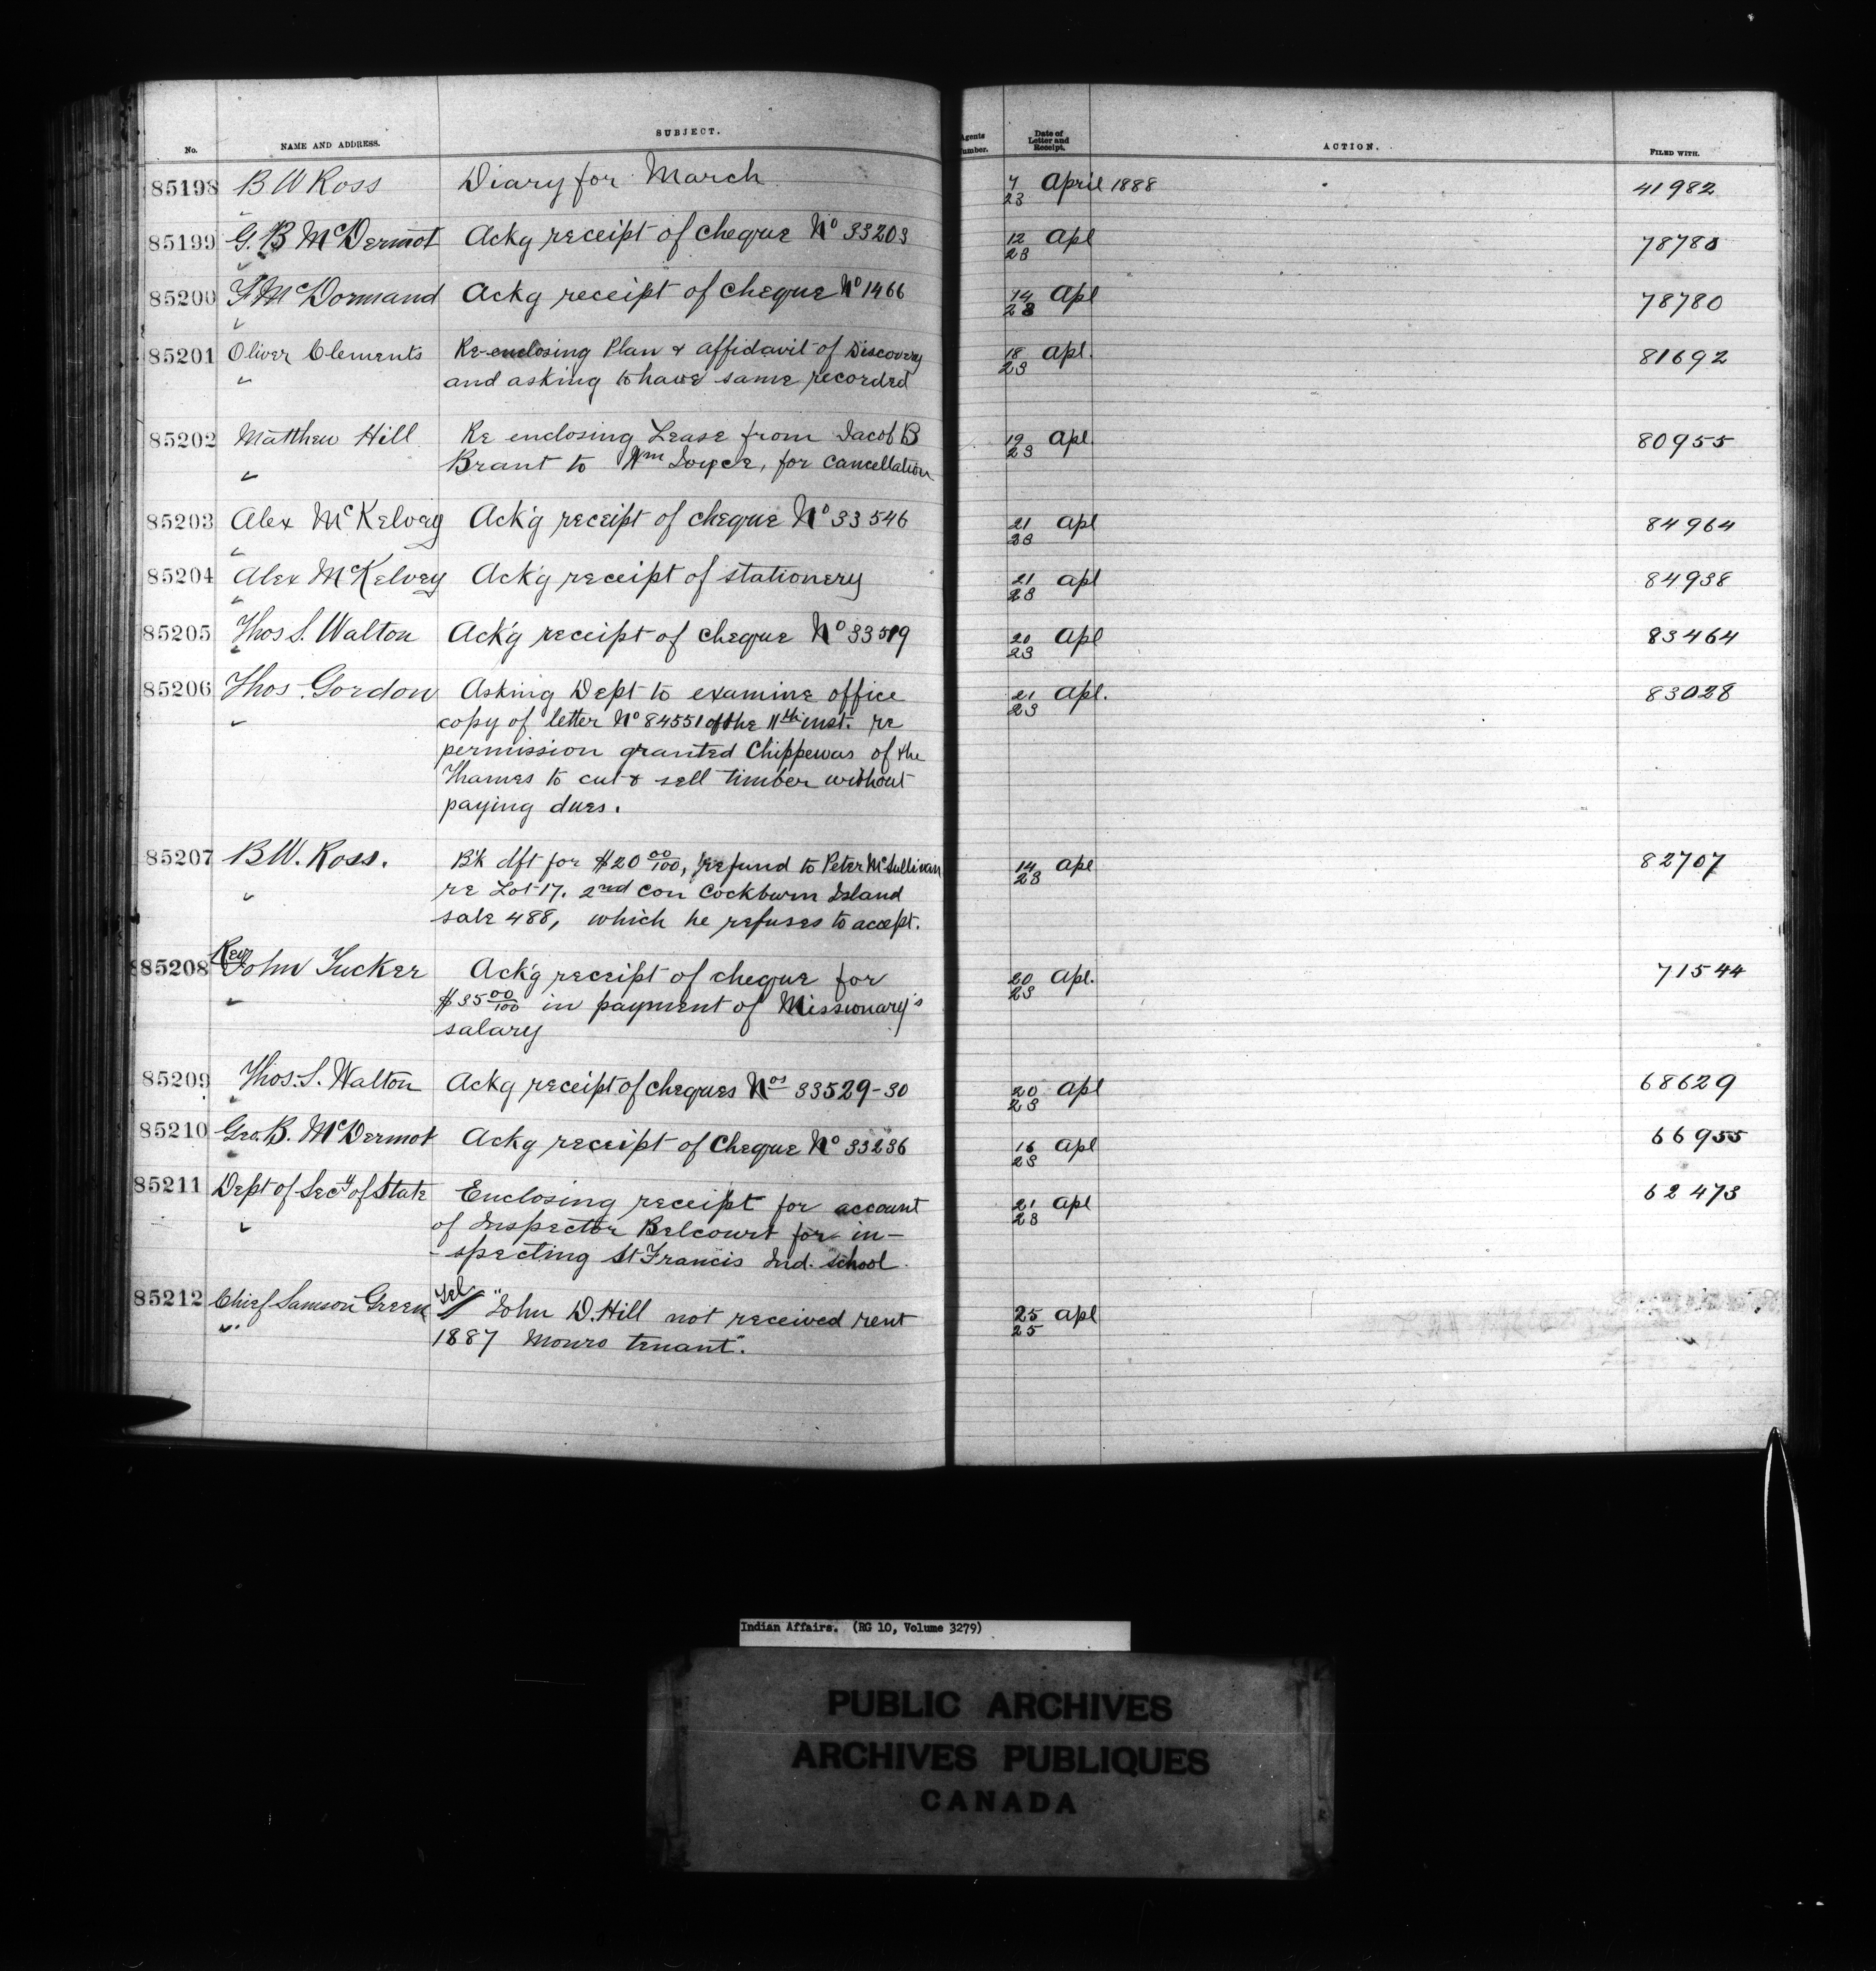 No. NAME AND ADDRESS. SUBJECT. Agents Number. Date of Letter and Receipt. ACTION. FILED WITH.
85198 B W Ross Diary for March 7/23 April 1888 41982
85199 G. B McDermot Ackg receipt of cheque No 33203 12/23 Apl 78780
85200 F McDormand Ackg receipt of cheque No 1466 14/23 Apl 78780
85201 Oliver Clements Re-enclosing Plan & affidavit of Discovery 18/23 Apl. 81692
" and asking to have same recorded
85202 Matthew Hill Re enclosing Lease from Jacob B 19/23 Apl. 80955
" Brant to Wm Joyce, for cancellation
85203 Alex McKelvey Ack'g receipt of cheque No 33546 21/23 Apl 84964
85204 Alex McKelvey Ack'g receipt of stationery 21/23 apl 84938
85205 Thos S. Walton Ack'g receipt of cheque No 33519 20/23 Apl 83464
85206 Thos. Gordon Asking Dept to examine office 21/23 Apl. 83028
" copy of letter No 84551 of the 11th inst. re
permission granted Chippewas of the
Thames to cut & sell timber without
paying dues.
85207 B W. Ross. B'k dft for $20 00/100, refund to Peter McSullivan 14/23 Apl 82707
" re Lot 17. 2nd Con Cockburn Island
sale 488, which he refuses to accept.
85208 Rev John Tucker Ack'g receipt of cheque for 20/23 Apl. 71544
" $35 00/100 in payment of Missionary's
salary
85209 Thos. S. Walton Ackg receipt of cheques Nos 33529-30 20/23 Apl 68629
85210 Geo. B. McDermot Ackg receipt of Cheque No 33236 16/23 Apl 66955
85211 Dept of Secy of State Enclosing receipt for account 21/23 Apl 62473
" of Inspector Belcourt for in-
-specting St Francis Ind. School.
85212 Chief Samson Green Tel. "John D. Hill not received rent 25/25 apl
" 1887 Monro tenant".
Indian Affairs. (RG 10, Volume 3279)
PUBLIC ARCHIVES
ARCHIVES PUBLIQUES
CANADA